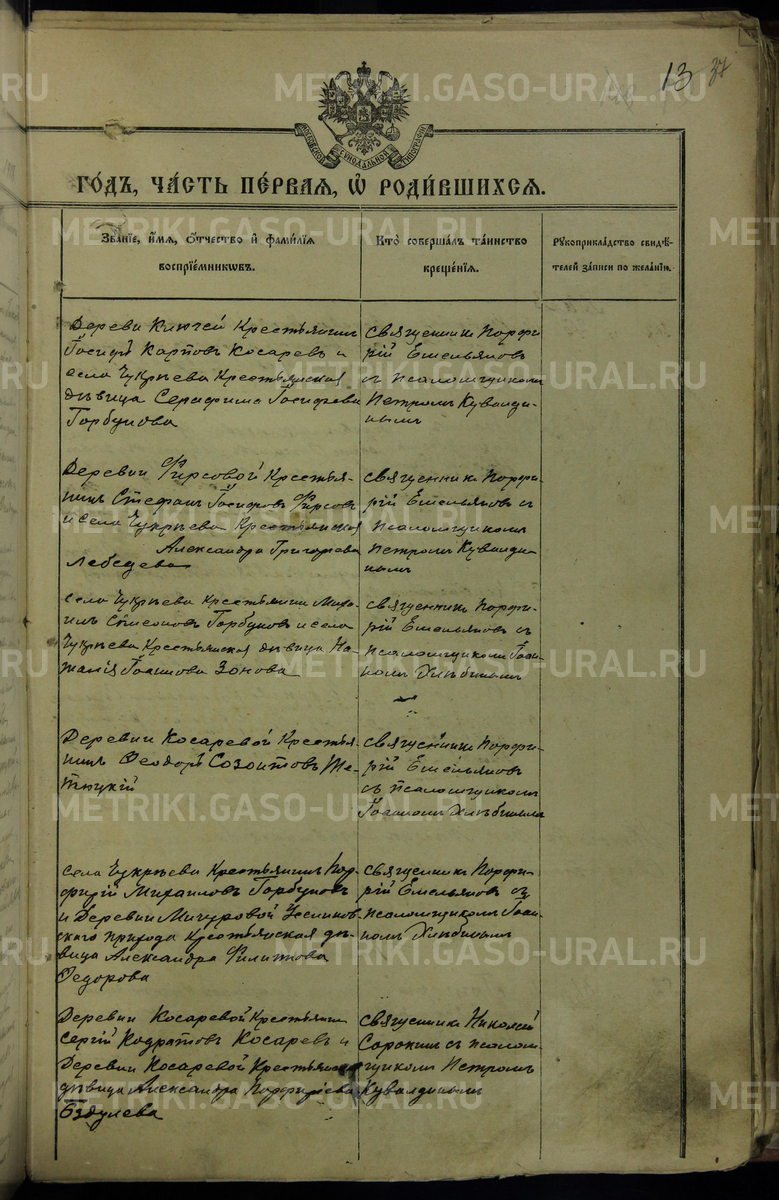 13 37
МОСКОВСКОЙ СИНОДАЛЬНОЙ ТИПОГРАФІИ
ГО́ДЪ, ЧА́СТЬ ПЕ́РВАЯ, Ѡ҆ РОДИ́ВШИХСЯ.
Зва́нїе, и҆́мѧ, ѻ҆́тчество и҆ фами́лїѧ
воспрїе́мникѡвъ.
Кто̀ соверша́лъ та́инство
креще́нїѧ.
Рꙋкоприкла́дство свидѣ́-
телей за́писи по жела́нїю.
Деревни Ключей Крестьянинъ
Іосифъ Карповъ Косаревъ и
села Чукрѣева Крестьянская
дѣвица Серафима Іосифова
Горбунова
Священникъ Порфи-
рій Емельяновъ
съ псаломщикомъ
Петромъ Кувалди-
нымъ
Деревни Фирсовой Крестья-
нинъ Стефанъ Іосифовъ Фирсовъ
и села Чукрѣева Крестьянская
Александра Григорьева
Лебедева
Священникъ Порфи-
рій Емельяновъ съ
псаломщикомъ
Петромъ Кувалди-
нымъ
села Чукрѣева Крестьянинъ Миро-
нъ Симеоновъ Горбуновъ и села
Чукрѣева Крестьянская дѣвица На-
талія Іоаннова Зонова
Священникъ Порфи-
рій Емельяновъ съ
псаломщикомъ Іоан-
номъ Хлѣбинымъ
Деревни Косаревой Крестья-
нинъ Феодоръ Созонтовъ
Священникъ Порфи-
рій Емельяновъ
съ псаломщикомъ
Іоанномъ Хлѣбинымъ
села Чукрѣева Крестьянинъ Пор-
фирій Михаиловъ Горбуновъ
и Деревни Мичуровой
прихода Крестьянская дѣ-
вица Александра Филиппова
Федорова
Священникъ Порфи-
рій Емельяновъ съ
псаломщикомъ Іоан-
номъ Хлѣбинымъ
Деревни Косаревой Крестьянинъ
Сергій Кодратовъ Косаревъ и
Деревни Косаревой Крестьянская
дѣвица Александра Порфирьева
Бздулева
Священникъ Николай
Сорокинъ съ псалом-
щикомъ Петромъ
Кувалдинымъ
METRIKI.GASO-URAL.RU